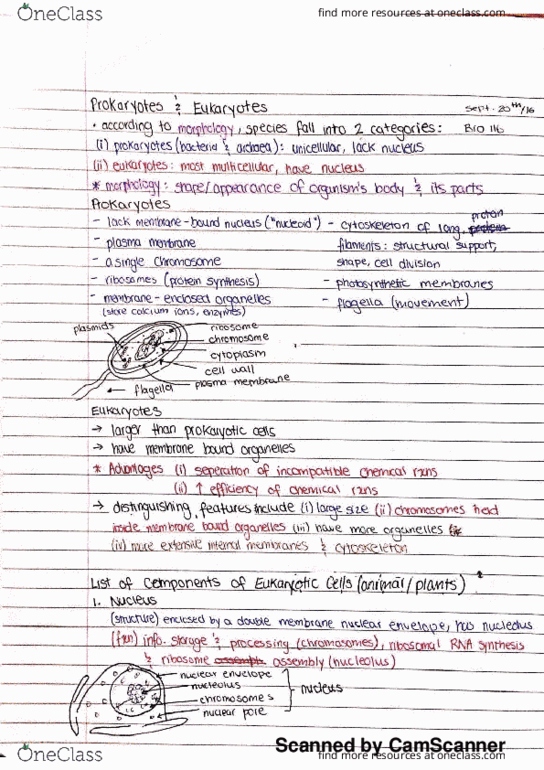 OneClass
find more resources at oneclass.com
Prokaryotes & Eukaryotes
Sept. 20th/16
• according to morphology, species fall into 2 categories:
Bio 116
(i) prokaryotes (bacteria & archaea): unicellular, lack nucleus
(ii) eukaryotes: most multicellular, have nucleus
* morphology: shape/appearance of organism's body & its parts
Prokaryotes
- lack membrane-bound nucleus ("nucleoid")
- plasma membrane
- a single chromosome
- ribosomes (protein synthesis)
- membrane-enclosed organelles
(store calcium ions, enzymes)
- cytoskeleton of long, protein
filaments: structural support,
shape, cell division
- photosynthetic membranes
- flagella (movement)
plasmids
ribosome
chromosome
cytoplasm
cell wall
plasma membrane
flagella
Eukaryotes
→ larger than prokaryotic cells
→ have membrane bound organelles
* Advantages (i) seperation of incompatible chemical rxns
(ii) ↑ efficiency of chemical rxns
→ distinguishing features include (i) large size (ii) chromosomes held
inside membrane bound organelles (iii) have more organelles
(iv) more extensive internal membranes & cytoskeleton
List of Components of Eukaryotic Cells (animal/plants)
1. Nucleus
(structure) enclosed by a double membrane nuclear envelope, has nucleolus
(fxn) info. storage & processing (chromosomes), ribosomal RNA synthesis
& ribosome assembly (nucleolus)
nuclear envelope
nucleolus
chromosomes
nuclear pore
nucleus
Scanned by CamScanner
OneClass
find more resources at oneclass.com